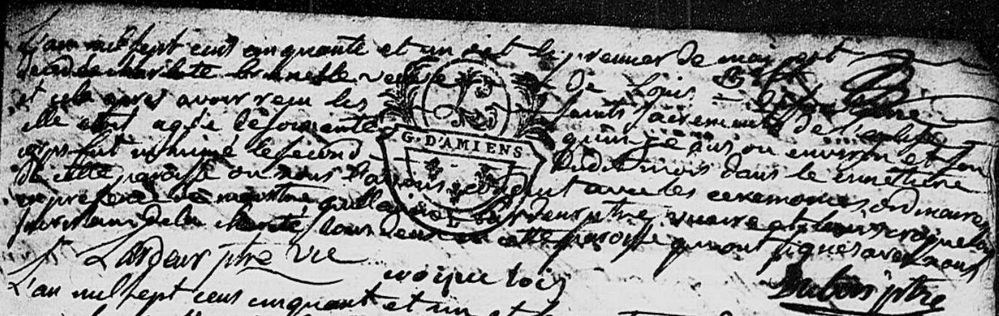 L'an mil sept cens cinquante et un est le premier de may est
decedée charlotte brunelle veuve de Louis
et cela apres avoir recu les saints sacrements de l'eglise
elle etoit agée de soixante quinze ans ou environ et son
corps fut inhumé le second dudit mois dans le cimetiere
de cette paroisse ou nous l'avons conduit avec les ceremonies ordinaires
en presence de maistre Lardeur ptre vicaire et Louis
de la charité tous deux de cette paroisse qui ont signes avec nous
Lardeur ptre Vic
Dubois ptre
L'an mil sept cens cinquant et un et
G. D'AMIENS